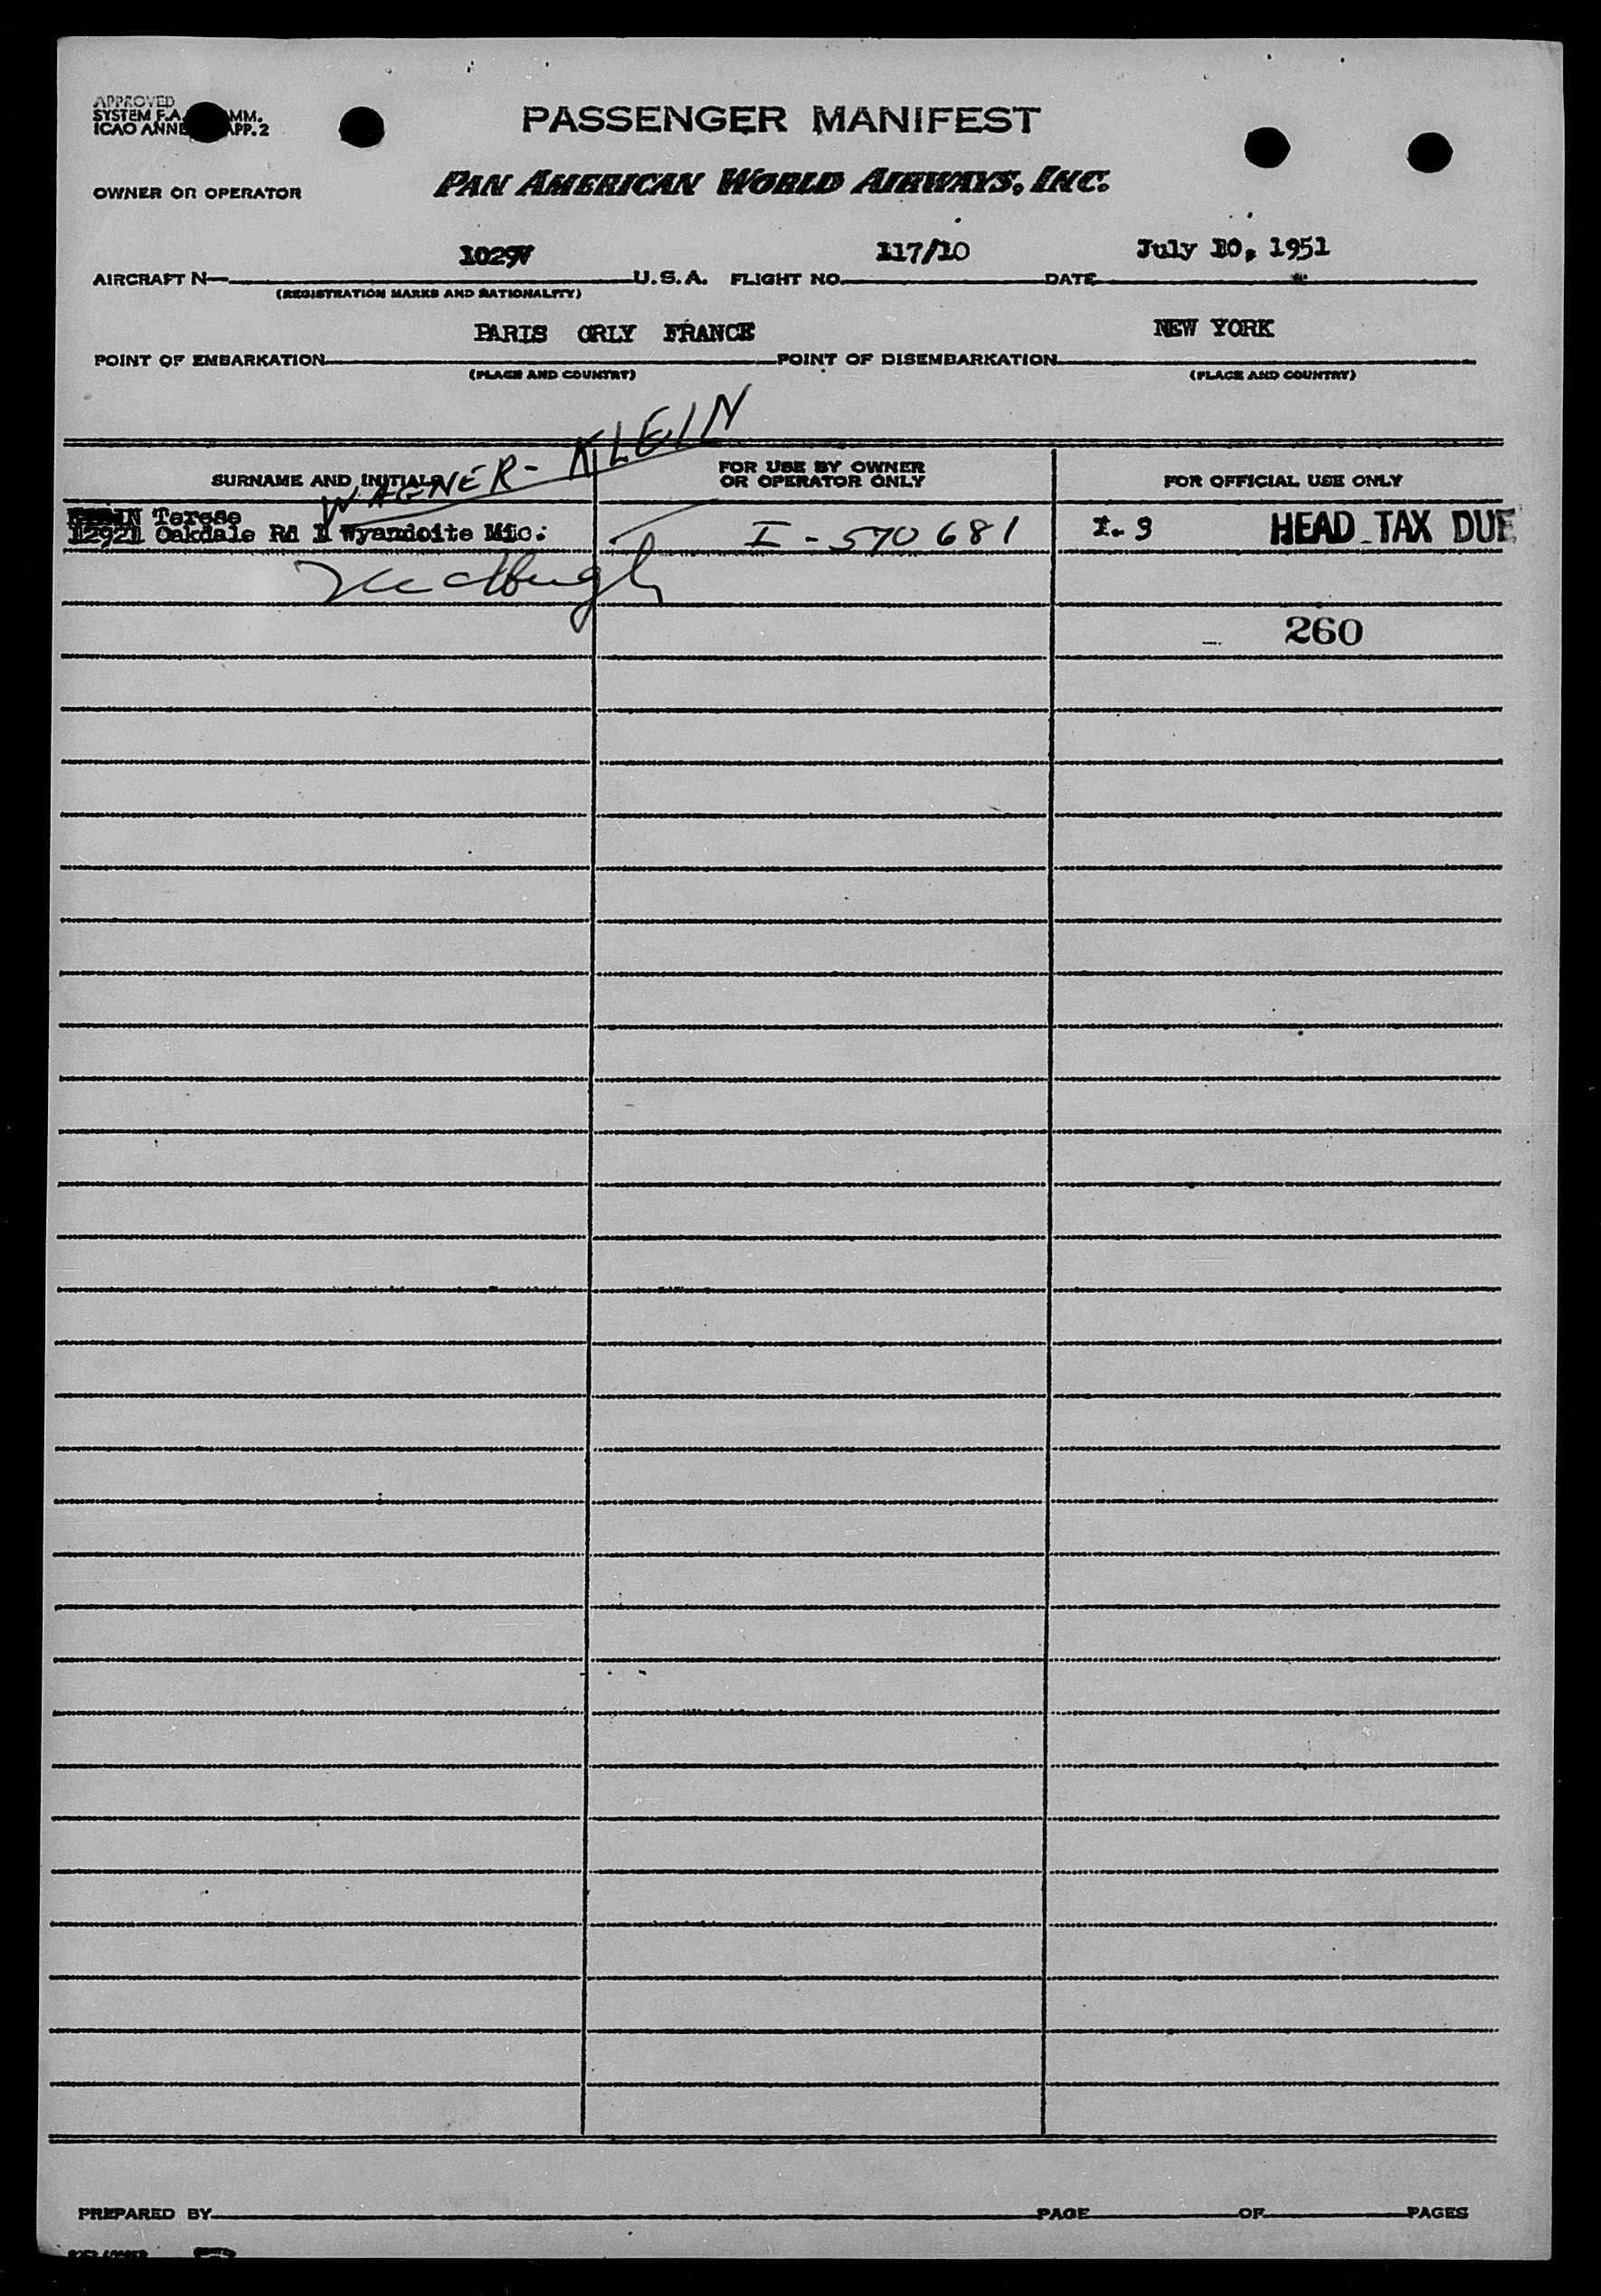 APPROVED
SYSTEM F.A. MM.
ICAO ANNE APP. 2
PASSENGER MANIFEST
OWNER OR OPERATOR PAN AMERICAN WORLD AIRWAYS, INC.
1029V 117/10 July 10, 1951
AIRCRAFT N— U.S.A. FLIGHT NO. DATE
(REGISTRATION MARKS AND NATIONALITY)
PARIS ORLY FRANCE NEW YORK
POINT OF EMBARKATION POINT OF DISEMBARKATION
(PLACE AND COUNTRY) (PLACE AND COUNTRY)
WAGNER - KLEIN
SURNAME AND INITIALS FOR USE BY OWNER OR OPERATOR ONLY FOR OFFICIAL USE ONLY
Terese
12921 Oakdale Rd Wyandoite Mic: I - 570681 I. 9 HEAD TAX DUE
260
PREPARED BY PAGE OF PAGES